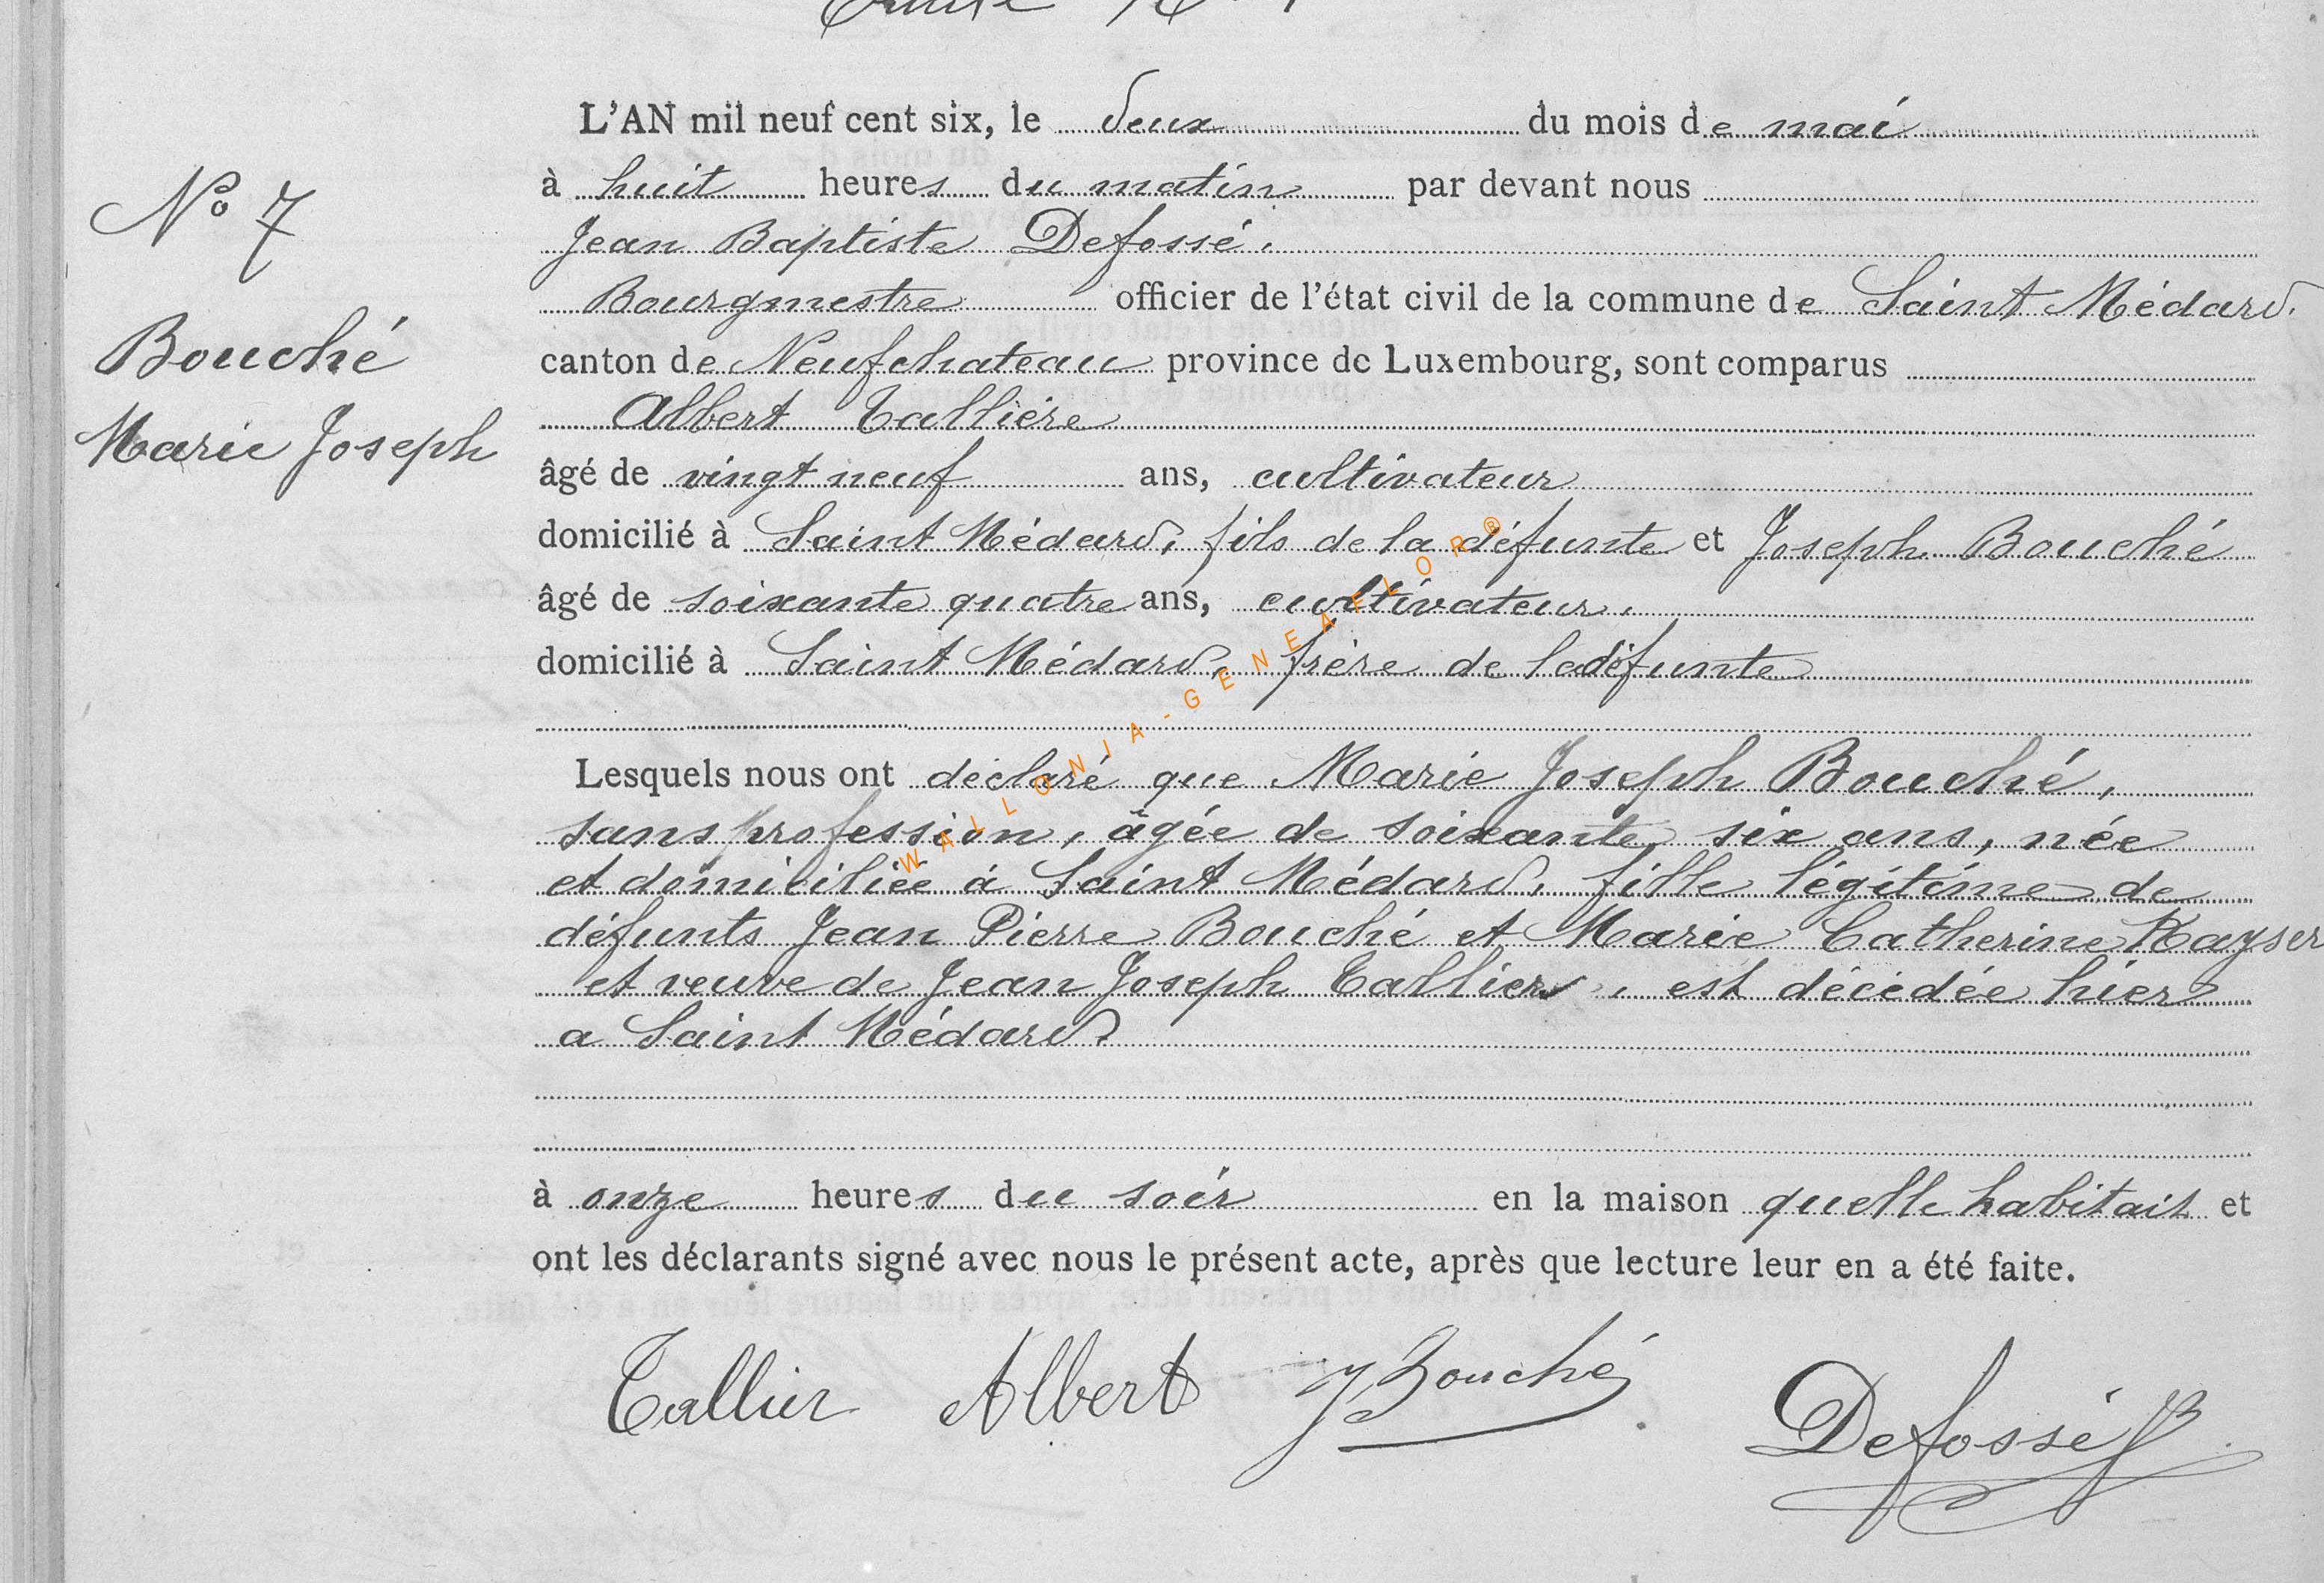 L'AN mil neuf cent six, le deux du mois de mai
à huit heures du matin par devant nous
Jean Baptiste Defossé,
Bourgmestre officier de l'état civil de la commune de Saint Médard.
canton de Neufchateau province de Luxembourg, sont comparus
Albert Tallière
âgé de vingt neuf ans, cultivateur
domicilié à Saint Médard, fils de la défunte et Joseph Bouché
âgé de soixante quatre ans, cultivateur,
domicilié à Saint Médard, frère de la défunte
Lesquels nous ont déclaré que Marie Joseph Bouché,
sans profession, âgée de soixante six ans, née
et domiciliée à Saint Médard, fille légitime de
défunts Jean Pierre Bouché et Marie Catherine Kayser
et veuve de Jean Joseph Tallier, est décédée hier
a Saint Médard
à onze heures du soir en la maison quelle habitait et
ont les déclarants signé avec nous le présent acte, après que lecture leur en a été faite.
Tallier Albert J Bouché Defossé JB
No 7
Bouché
Marie Joseph
WALLONIA-GENEAFLOR®